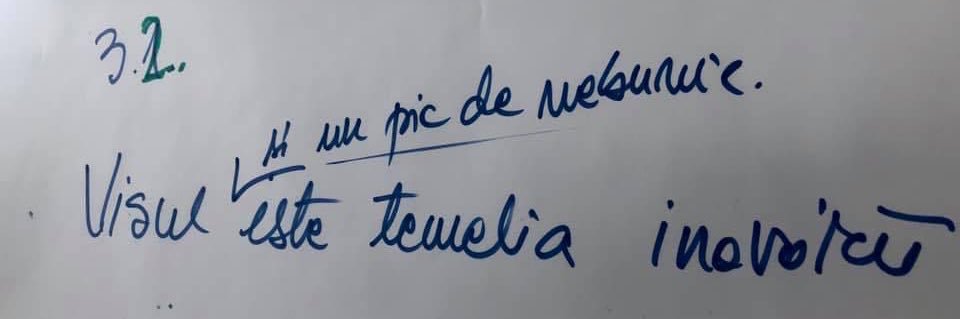 3.2.
și un pic de nebunie.
Visul este temelia inovării